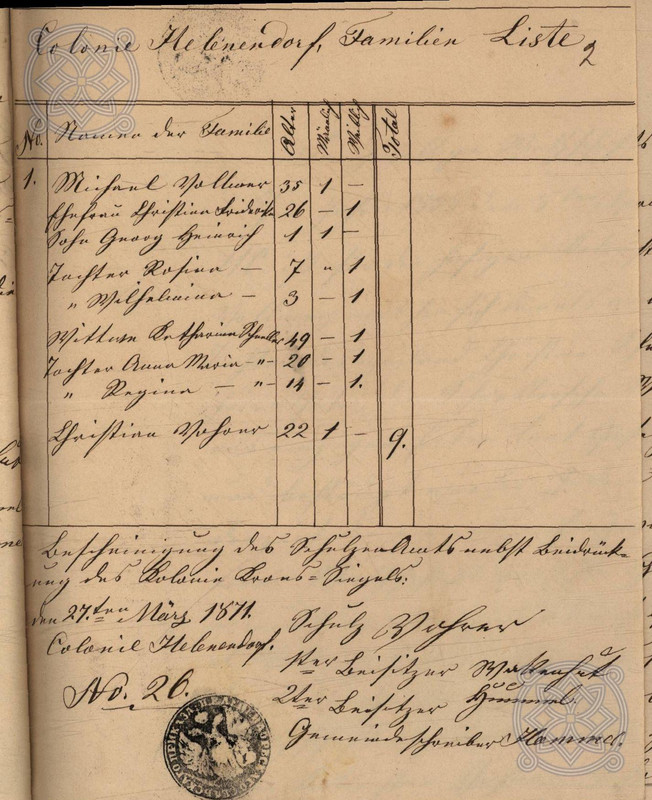 Colonie Helenendorf, Familien Liste 2
No. Namen der Familie Alter Mänlich Weiblich Total
1. Michael Vollmer 35 1 —
Ehefrau Christina Friderika 26 — 1
Sohn Georg Heinrich 1 1 —
Tochter Rosina — 7 " 1
" Wilhelmina — 3 — 1
Wittwe Katharina 49 — 1
Tochter Anna Maria —"— 20 — 1
" Regina — "— 14 — 1.
Christian Vohrer 22 1 — 9.
Bescheinigung des Schulzen Amts nebst Beidrück-
ung des Kolonie Krons-Siegels:
den 27.ten März 1871.
Colonie Helenendorf.
No. 26.
Schulz Vohrer
1ter Beisitzer Wakenhut
2ter Beisitzer Hummel.
Gemeindeschreiber Hammer.